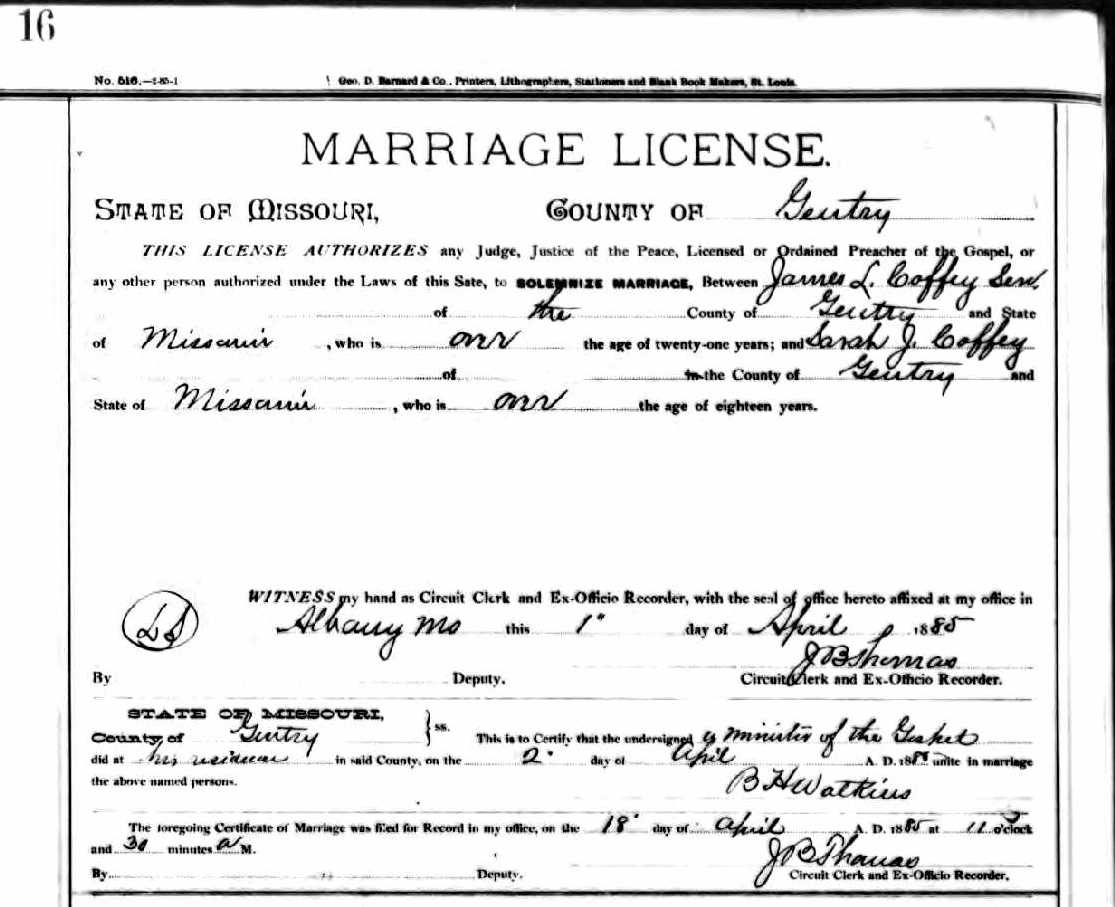 16
No. 516.—2-85-1 Geo. D. Barnard & Co., Printers, Lithographers, Stationers and Blank Book Makers, St. Louis.
MARRIAGE LICENSE.
STATE OF MISSOURI, COUNTY OF Gentry
THIS LICENSE AUTHORIZES any Judge, Justice of the Peace, Licensed or Ordained Preacher of the Gospel, or
any other person authorized under the Laws of this Sate, to SOLEMNIZE MARRIAGE, Between James L. Coffey Sen.
of the County of Gentry and State
of Missouri, who is over the age of twenty-one years; and Sarah J. Coffey
of in the County of Gentry and
State of Missouri, who is over the age of eighteen years.
WITNESS my hand as Circuit Clerk and Ex-Officio Recorder, with the seal of office hereto affixed at my office in
LS Albany Mo this 1" day of April 1885
J B Thomas
By Deputy. Circuit Clerk and Ex-Officio Recorder.
STATE OF MISSOURI,
County of Gentry } ss. This is to Certify that the undersigned a minister of the
did at his residence in said County, on the 2" day of April A. D. 1885 unite in marriage
the above named persons. B H Watkins
The foregoing Certificate of Marriage was filed for Record in my office, on the 18" day of April A. D. 1885 at 11 o'clock
and 30 minutes A M. J B Thomas
By Deputy. Circuit Clerk and Ex-Officio Recorder.